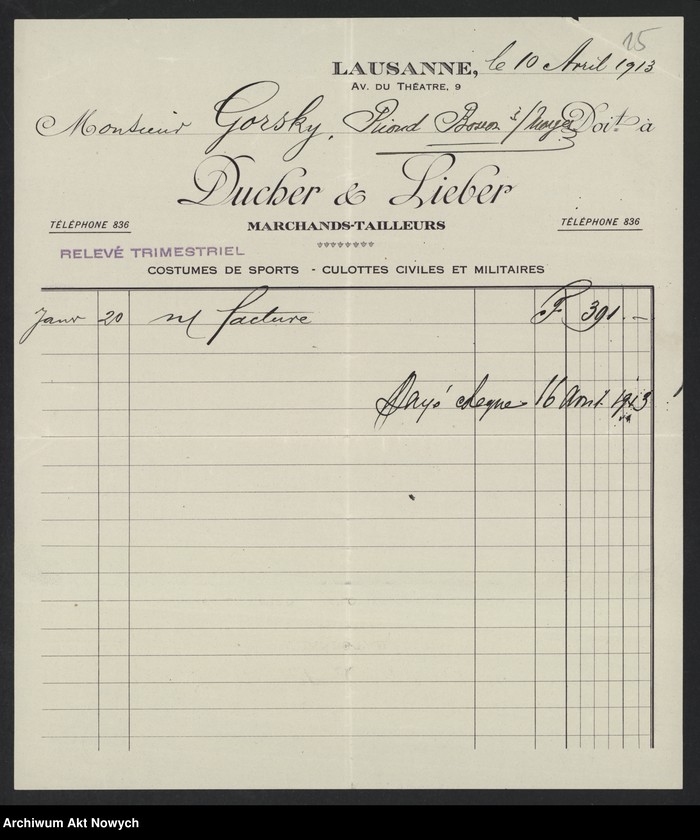 15
LAUSANNE, le 10 Avril 1913
AV. DU THÉATRE, 9
Monsieur Gorsky, Riond Bosson s/Morges Doit à
Ducher & Lieber
MARCHANDS-TAILLEURS
TÉLÉPHONE 836
TÉLÉPHONE 836
RELEVÉ TRIMESTRIEL
COSTUMES DE SPORTS - CULOTTES CIVILES ET MILITAIRES
Janv 20 m/ facture F. 391.—
Payé cheque 16 1913
Archiwum Akt Nowych